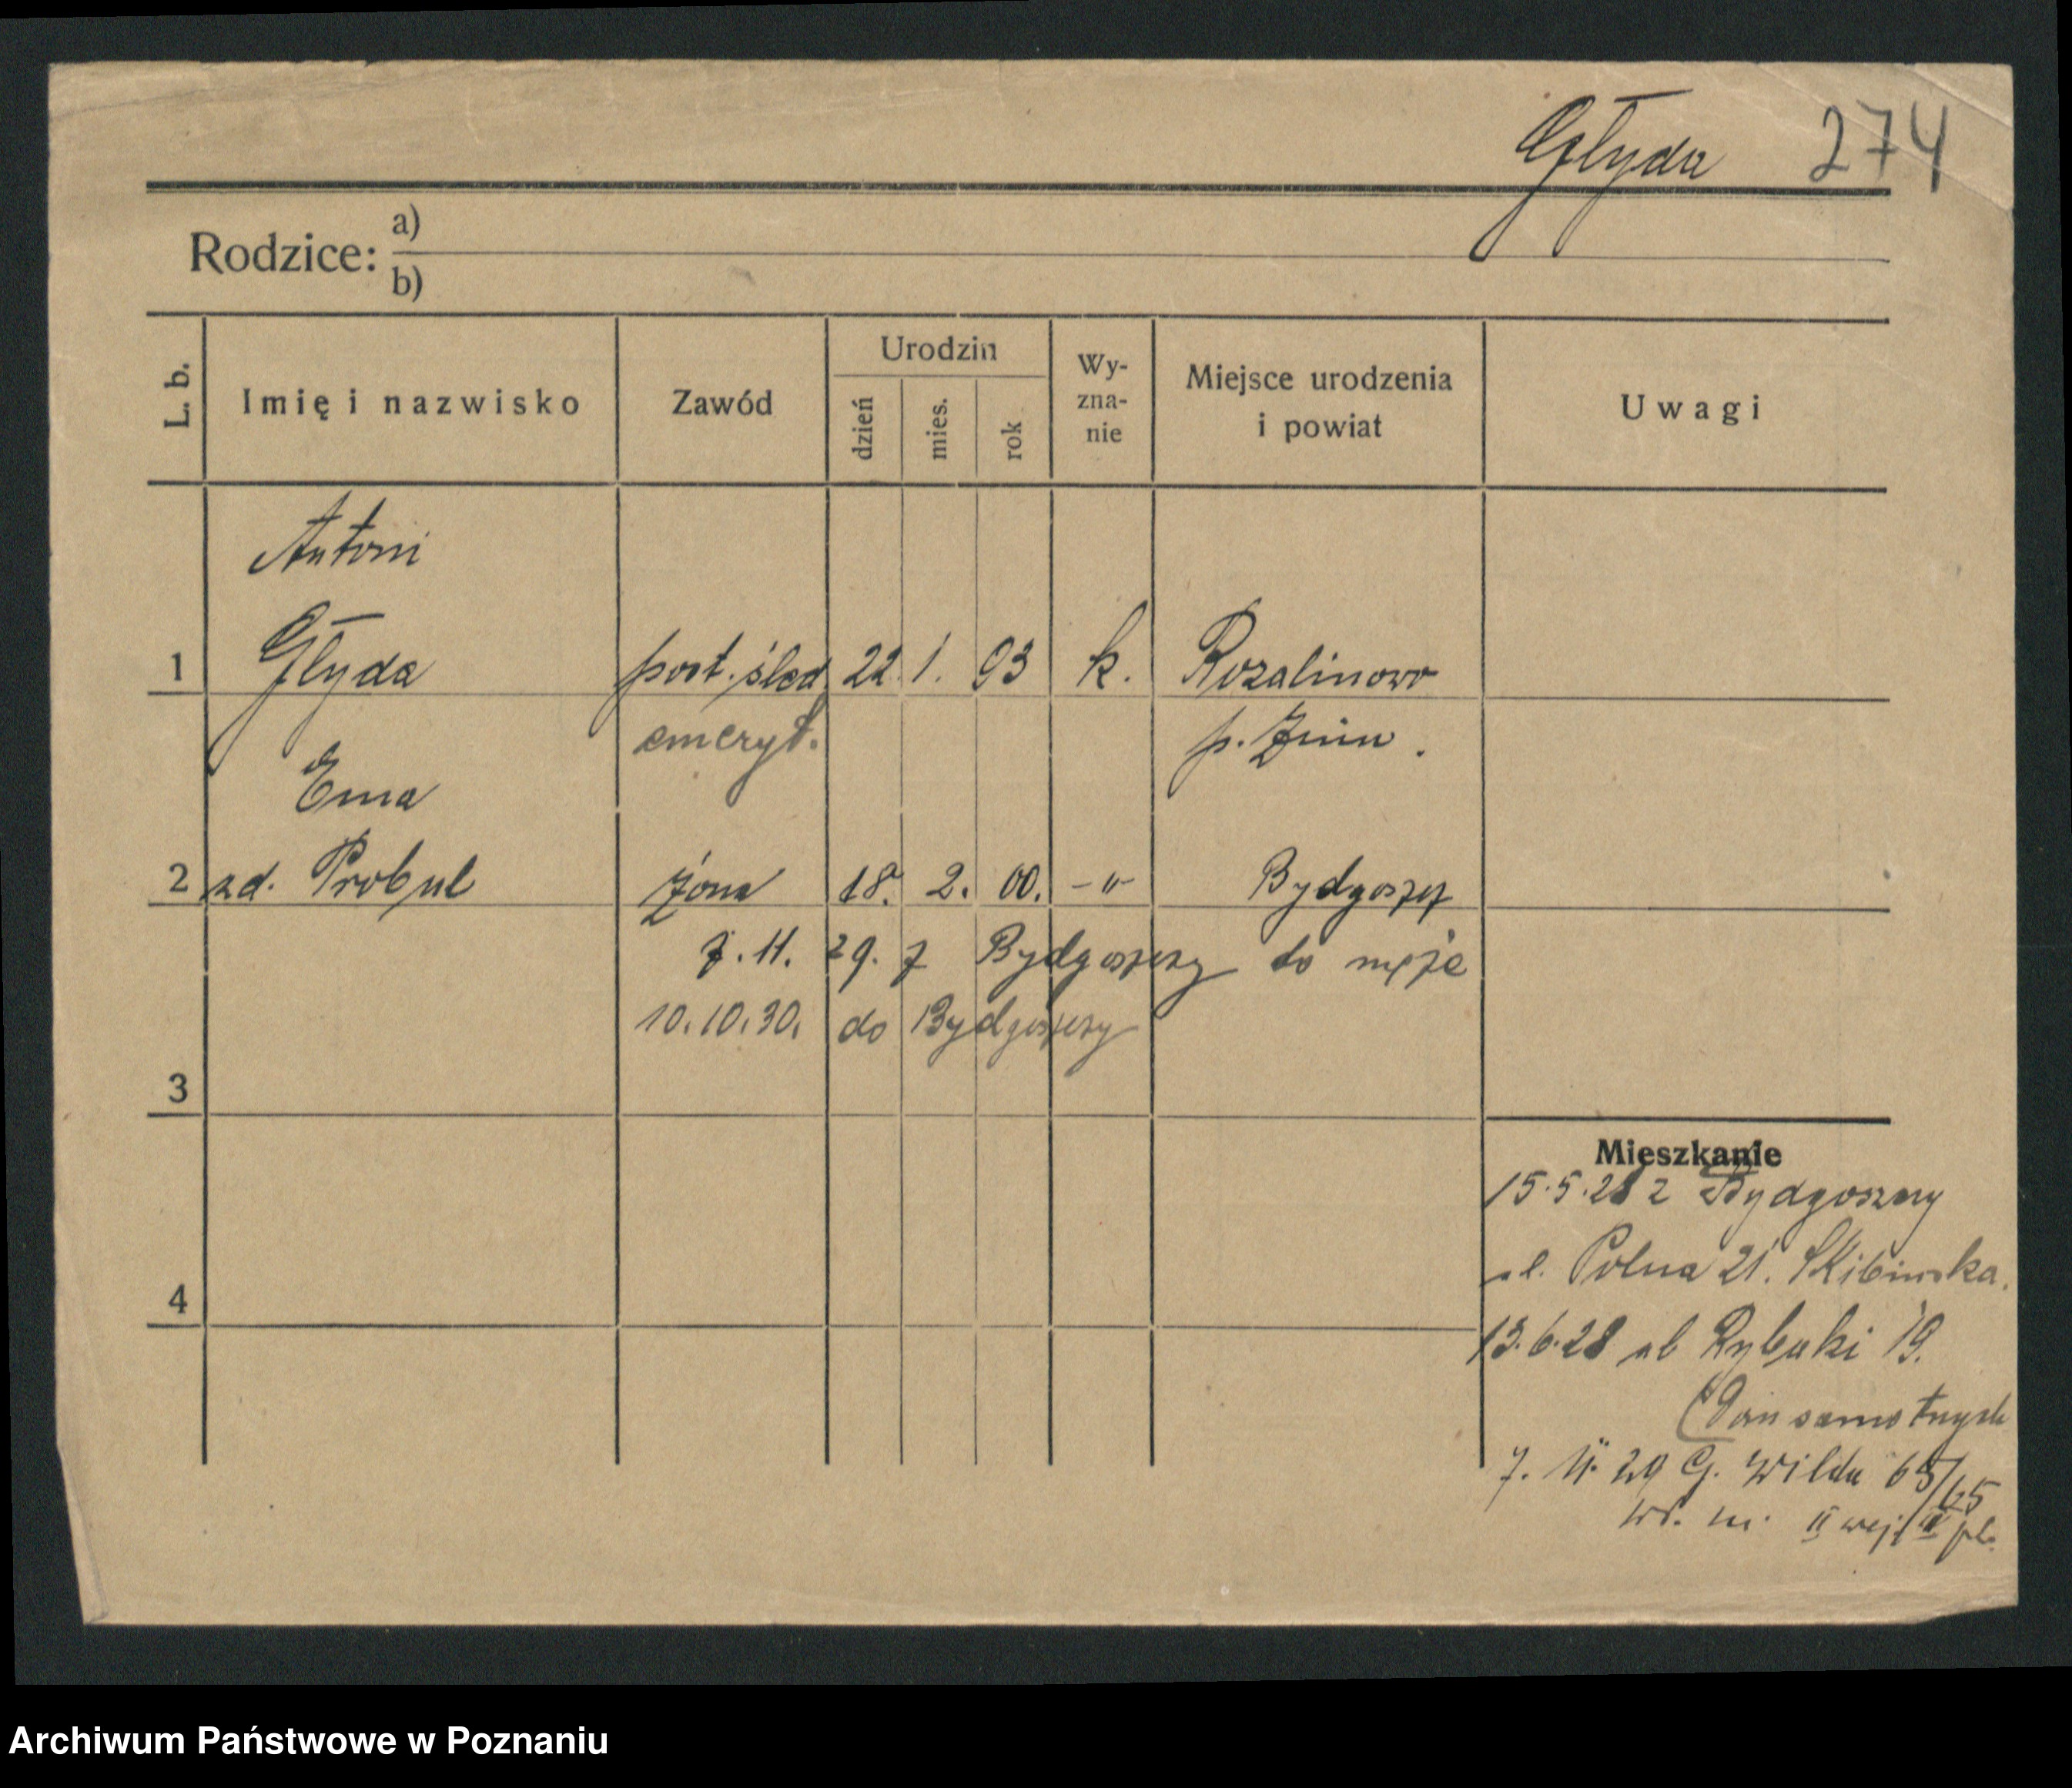 Głyda 274
Rodzice: a)
b)
L. b. Imię i nazwisko Zawód Urodzin dzień mies. rok Wy-zna-nie Miejsce urodzenia i powiat Uwagi
Antoni
1 Głyda post. śled 22. 1. 93 k. Rozalinowo
emeryt. p. Żnin.
Ema
2 zd. Probul żona 18. 2. 00. -"- Bydgoszcz
7. 11. 29. z Bydgoszczy do męża
10.10.30. do Bydgoszczy
3
Mieszkanie
15.5.28 z Bydgoszczy
ul. Polna 21. Skibińska.
4
13.6.28 ul Rybaki 19.
(Dom samotnych
7. 11. 29 G. Wilda 65/65
wł. m. II wej. IV pt.
Archiwum Państwowe w Poznaniu